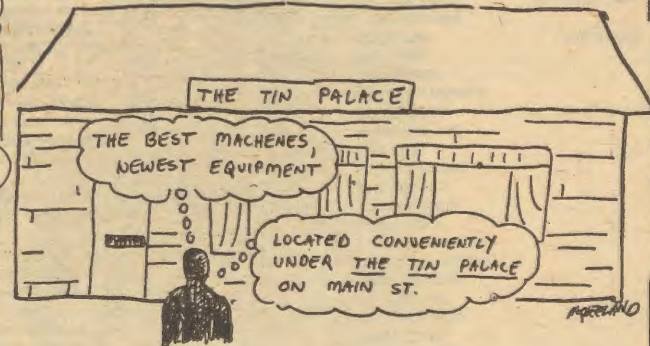 THE TIN PALACE
THE BEST MACHENES,
NEWEST EQUIPMENT
LOCATED CONVENIENTLY
UNDER THE TIN PALACE
ON MAIN ST.